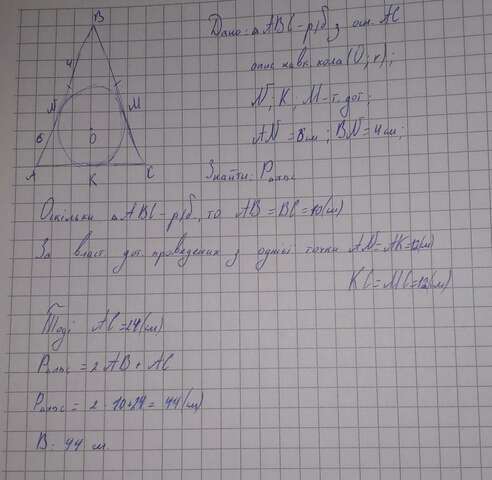 B
Дано: △ABC - р/б з осн. AC
опис навк. кола (O; r);
4
N; K; M - т. дот;
N
M
AN = 8см; BN = 4см;
6
O
A
K
C
Знайти: P
Оскільки △ABC - р/б, то AB = BC = 10(см)
За власт дот. проведених з однієї точки AN = AK = 12(см)
KC = MC = 12(см)
Тоді AC = 24(см)
P = 2AB + AC
P = 2 · 10 + 24 = 44(см)
В: 44 см.